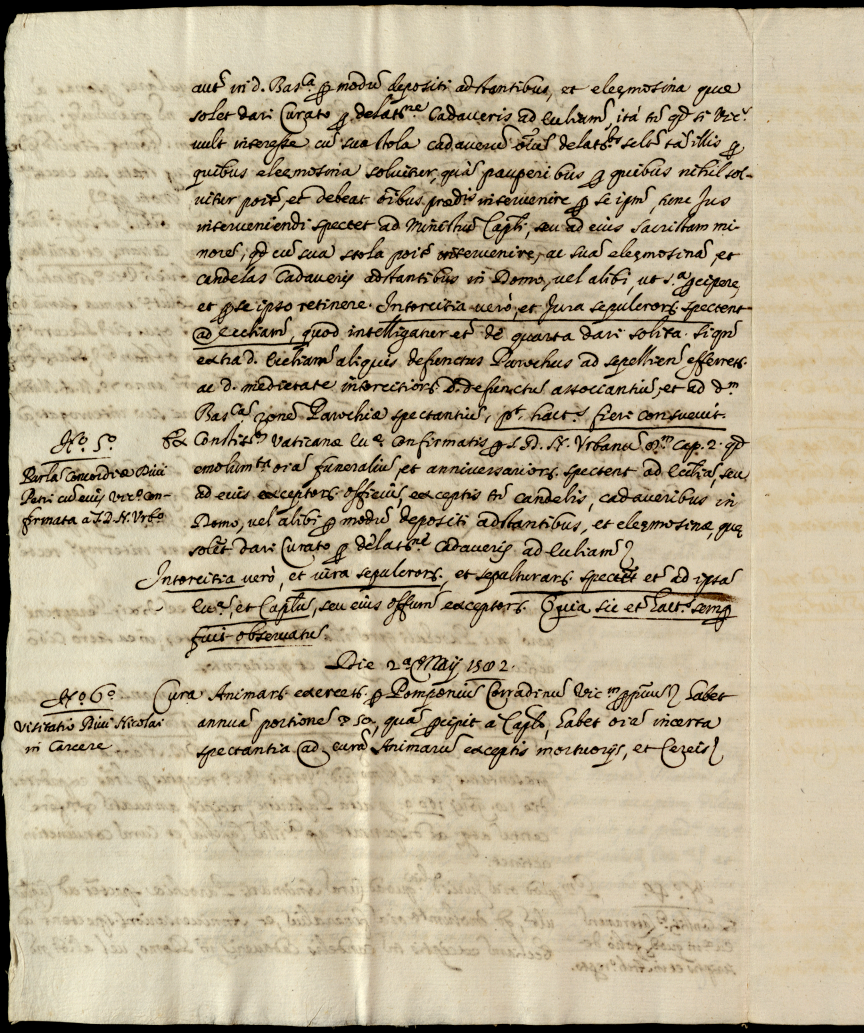 aut̃ in d. Bas.ca ꝑ modũ depositi adstantibus, et eleemosina que
solet dari Curato ꝑ delat.ne Cadaveris ad Eccliam, ità tñ qd̃ si Vic.s
vult interesse cũ sua stola cadaverũ oĩus delat. tã illis ꝑ
quibus eleemosina solvitur, quã pauperibus ꝑ quibus nihil sol-
vitur poss, et debeat oĩbus prædis intervenire ꝑ se ipm̃, tunc Jus
interveniendi spectet ad Ministrũ Capli, seu ad eius Sacristam mi-
norẽ, qd̃ cũ sua stola poss intervenire, ac suã eleemosinã, et
candelas Cadaveris adstantibus in Domo, vel alibi, ut s.a ꝑcipere,
et ꝑ se ipso retinere. Intorcitia verò, et Jura sepulcrors spectent
ad Eccliam, quod intelligatur et de quarta dari solita. Si qñ
extra d. Eccliam aliquis defunctus Parochus ad sepelliend efferret.
ac d. medietate intorcitiors d. defunctũ associantiũ, et ad d.m
Bas.cã Parochiæ spectantiũ, pt hact.s fieri consuevit.
No. 5.o
Par la Concordiæ Divi
Petri cũ eius Vic.o Con-
firmata a S. D. N. Urb.o
Ex Constit.s Vaticanæ Ecc.e Confirmatis ꝑ S. D. N. Urbanũ Cap. 2. qd̃
emolum.ta oĩa funeraliũ, et anniversariors spectent ad Eccliã, seu
ad eius exceptors officiũ, exceptis tñ candelis, cadaveribus in
Domo, vel alibi ꝑ modũ depositi adstantibus, et eleemosinæ, quæ
solet dari Curato ꝑ delat.ne Cadaveris ad Eccliam
Intorcitia verò, et iura sepulcrors, et sepulturars spectẽt et ad ipsã
Ecc.am, et Caplũ, seu eius offium exceptors. Quia sic et hact.s semꝑ
fuit observatũ.
Die 2.a Maij 1582.
No. 6.o
Visitatio Divi Nicolai
in Carcere
Cura Animars exercet. ꝑ Pomponiũ Corradinũ Vic.m ꝑpetuũ habet
annuã portionẽ 50, quã ꝑcipit a Caplo, habet oĩa incerta
spectantia ad curã Animarũ exceptis mortuorijs, et Cereis